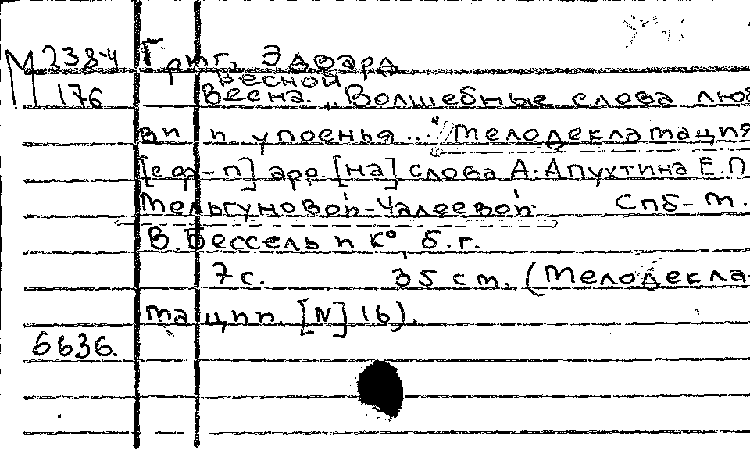 М 238-4 Григ, Эдвард
весной
176 Весна. „Волшебные слова люб
ви и упоенья..." Мелодекламация
[с ф-п] арр. [на] слова А. Апухтина Е.П.
Мельгуновой-Чалеевой. Спб-М.
В. Бессель и К°, б.г.
7с. 35 см. (Мелодекла-
мации. [N] 16).
6636.